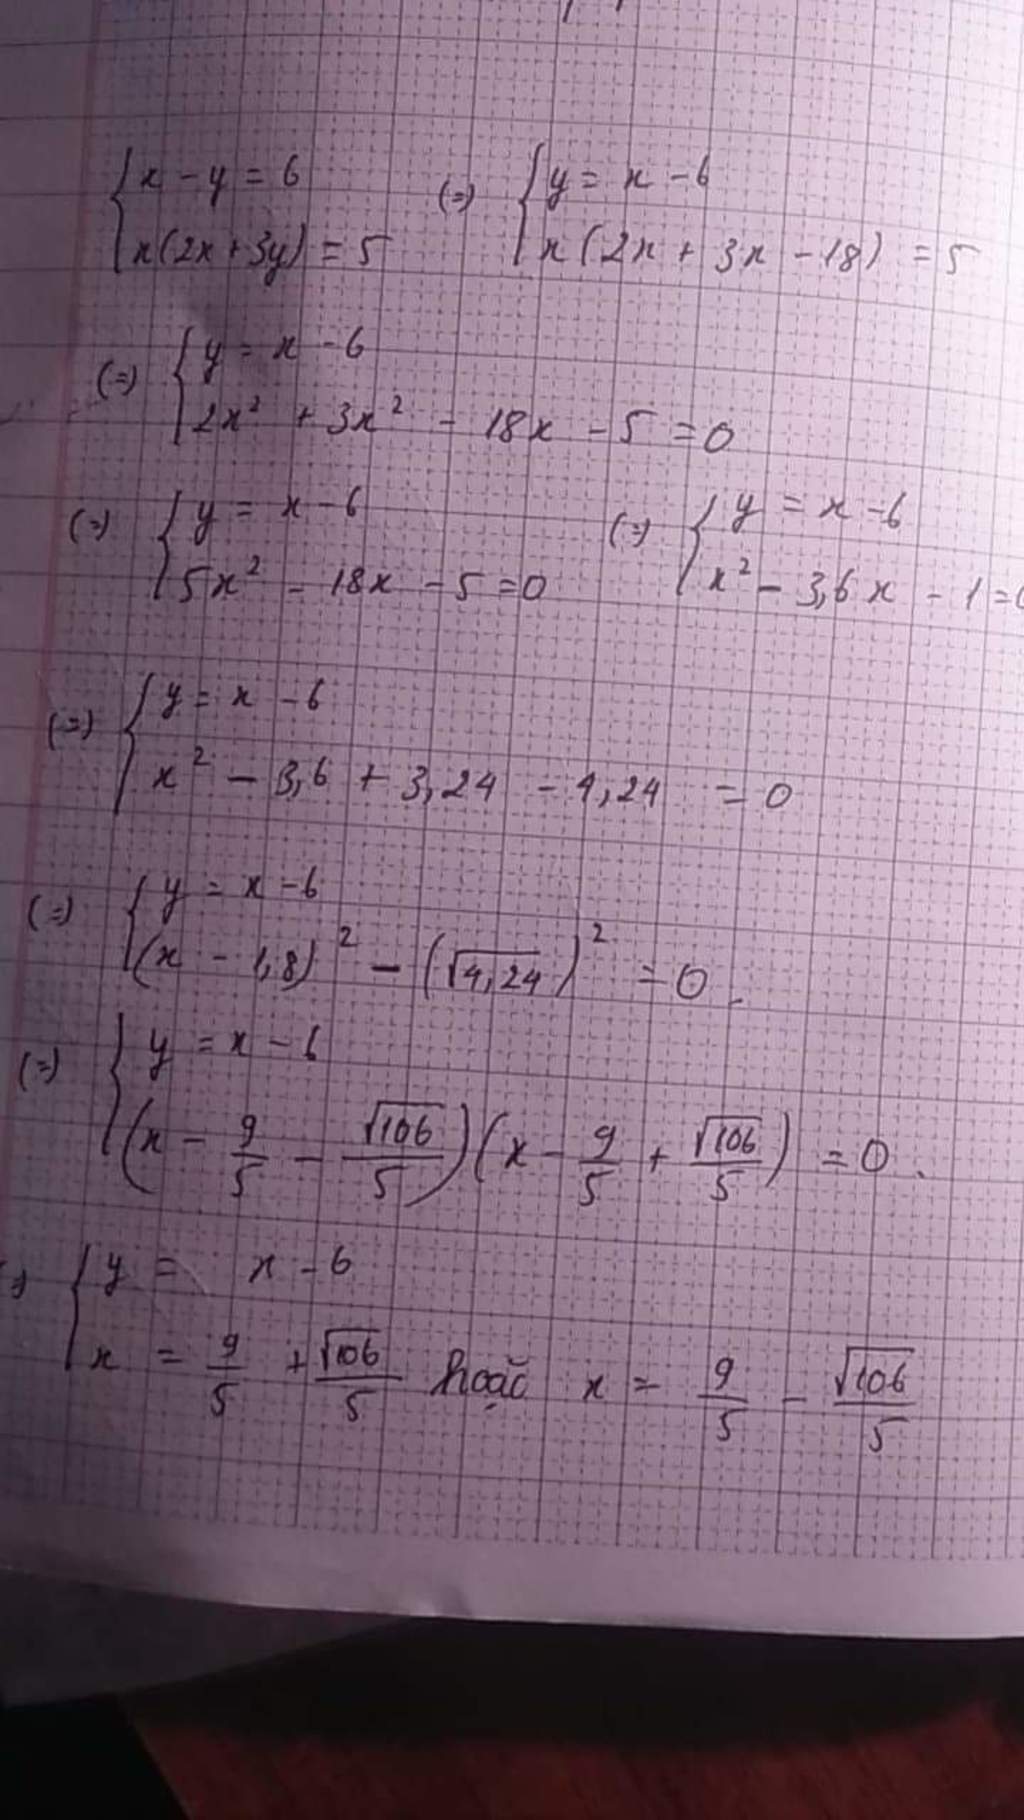 {x - y = 6 (=) {y = x - 6
{x(2x + 3y) = 5 {x(2x + 3x - 18) = 5
(=) {y = x - 6
{2x² + 3x² - 18x - 5 = 0
(=) {y = x - 6 (=) {y = x - 6
{5x² - 18x - 5 = 0 {x² - 3,6x - 1 = 0
(=) {y = x - 6
{x² - 3,6 + 3,24 - 4,24 = 0
(=) {y = x - 6
{(x - 1,8)² - (√4,24)² = 0.
(=) {y = x - 6
{(x - 9/5 - √106/5)(x - 9/5 + √106/5) = 0.
(=) {y = x - 6
{x = 9/5 + √106/5 hoặc x = 9/5 - √106/5